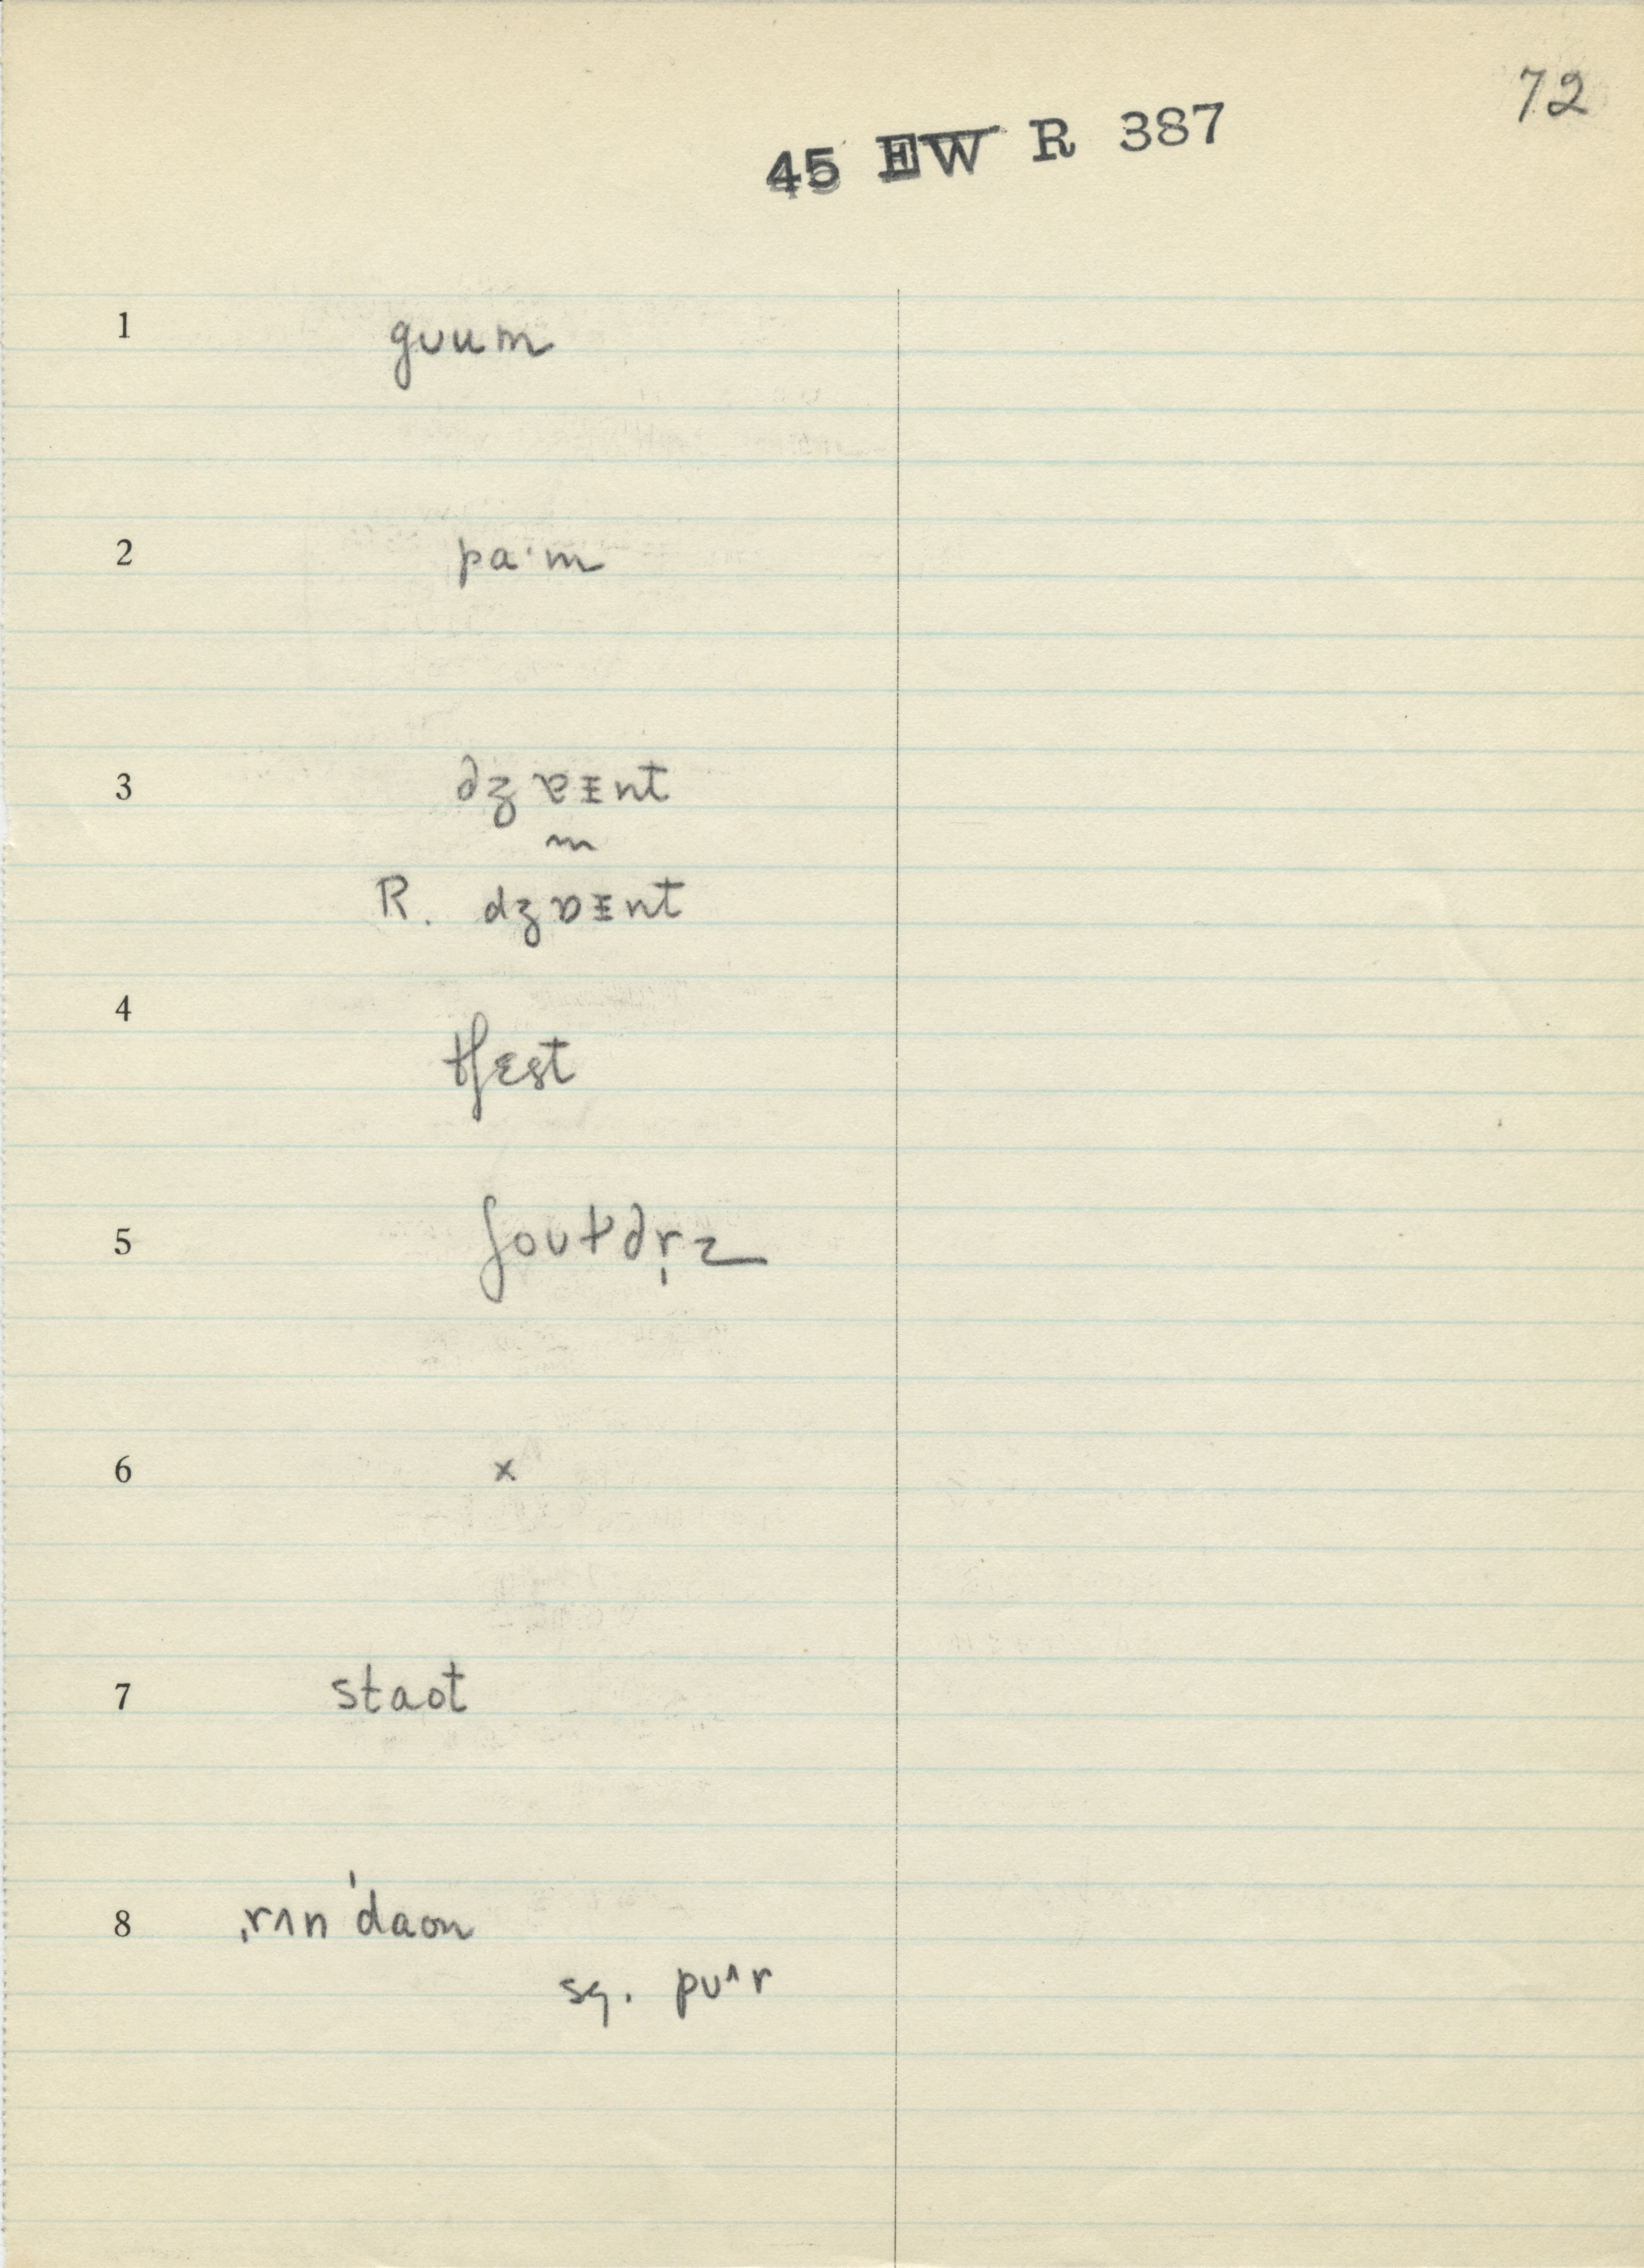 72
45 EW R 387
1 gʊum
2 pa·m
3 dʒɐɪnt
m
R. dʒɒɪnt
4 tʃɛst
5 ʃoʊtdr̩z
6 x
7 staot
8 ˌrʌnˈdaon
sq. pʊ^r